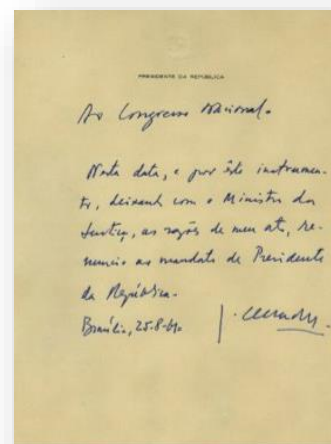 PRESIDENTE DA REPÚBLICA
Ao Congresso Nacional.
Nesta data, e por êste instrumen-
to, deixando com o Ministro da
Justiça, as razões de meu ato, re-
nuncio ao mandato de Presidente
da República.
Brasília, 25-8-61.
J. Quadros